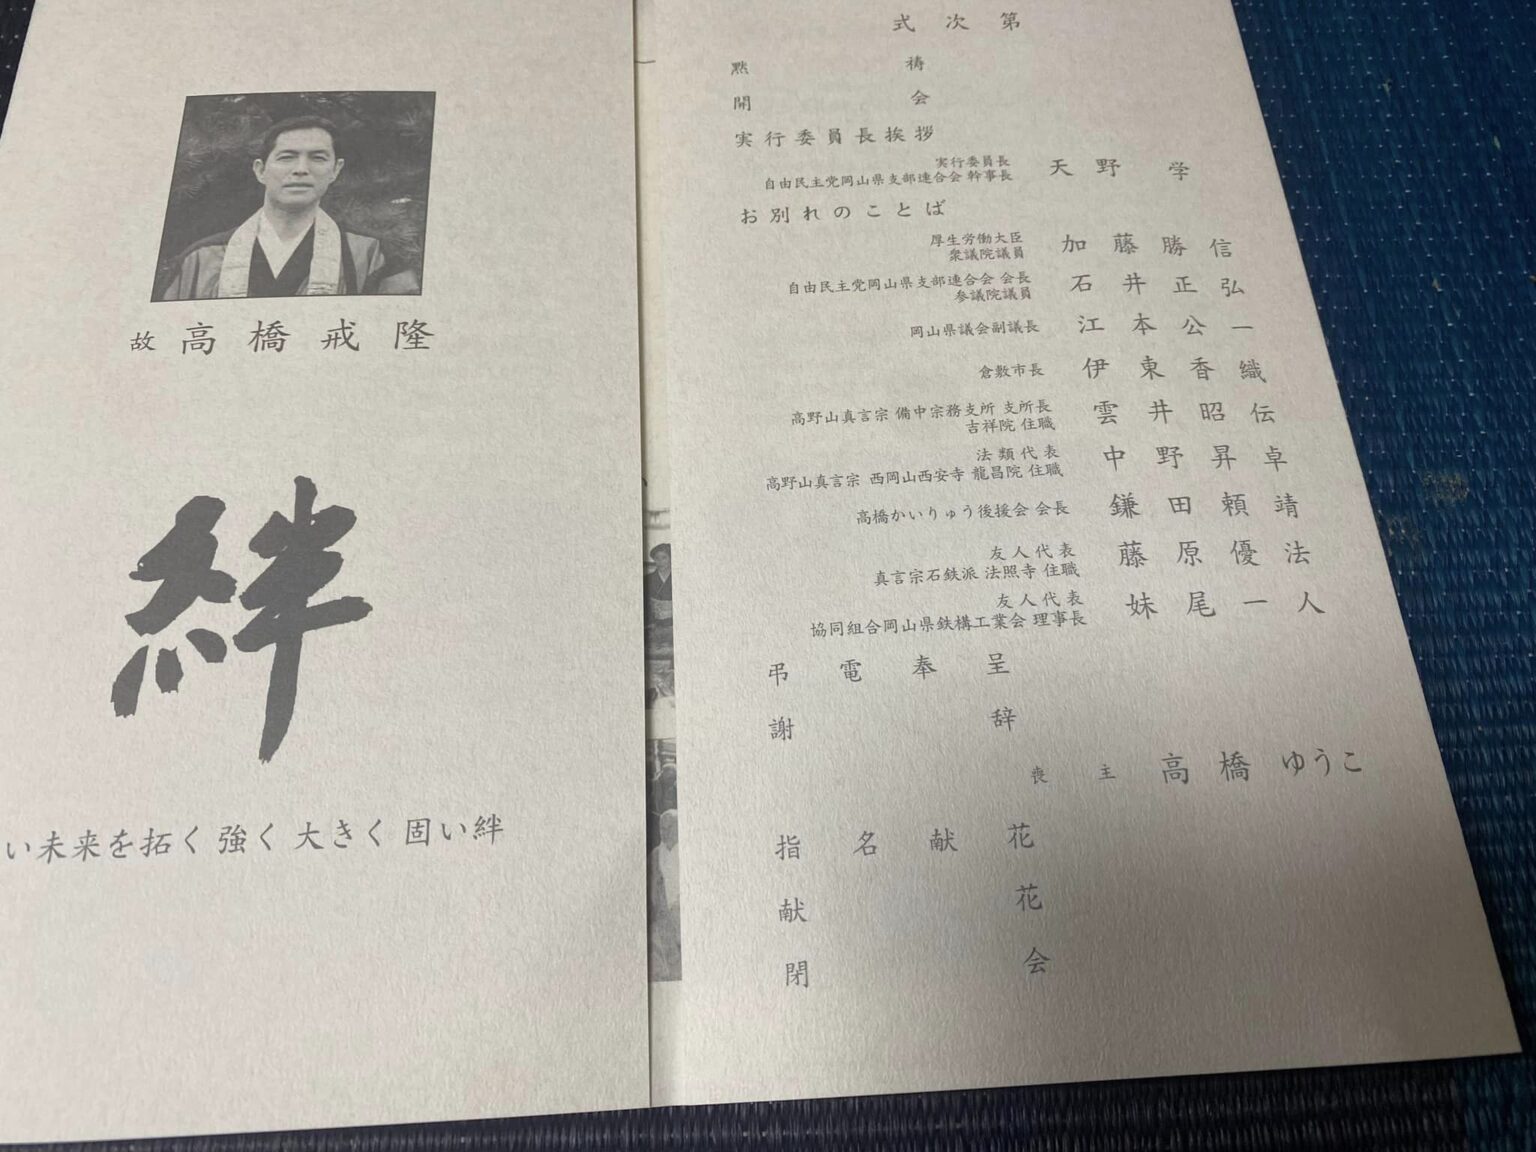 故 高橋戒隆
絆
い未来を拓く 強く 大きく 固い絆
式次第
黙祷
開会
実行委員長挨拶
実行委員長
自由民主党岡山県支部連合会 幹事長 天野 学
お別れのことば
厚生労働大臣
衆議院議員 加藤勝信
自由民主党岡山県支部連合会 会長
参議院議員 石井正弘
岡山県議会副議長 江本公一
倉敷市長 伊東香織
高野山真言宗 備中宗務支所 支所長
吉祥院 住職 雲井昭伝
法類代表
高野山真言宗 西岡山西安寺 龍昌院 住職 中野昇卓
高橋かいりゅう後援会 会長 鎌田頼靖
友人代表
真言宗石鉄派 法照寺 住職 藤原優法
友人代表
協同組合岡山県鉄構工業会 理事長 妹尾一人
弔電奉呈
謝辞
喪主 高橋ゆうこ
指名献花
献花
閉会